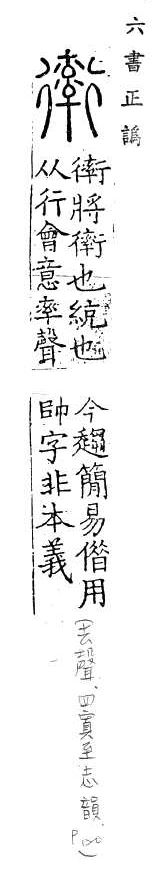 六書正譌
𧗿
𧗿將𧗿也統也
从行會意率聲
今趨簡易借用
帥字非本義
(去聲、四寘至志韻、